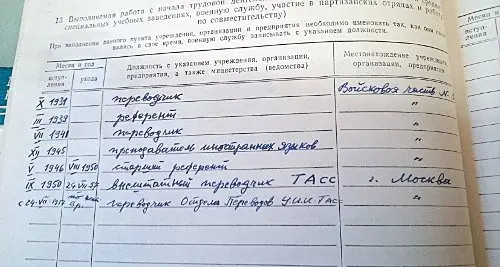 13 Выполняемая работа с начала трудовой
специальных учебных заведениях, военную службу, участие в партизанских отрядах и
по совместительству)
При заполнении данного пункта учреждения, организации и предприятия необходимо именовать так, как они
вались в свое время, военную службу записывать с указанием должности.
Месяц и год
вступ-
ления
ухода
Должность с указанием учреждения, организации,
предприятия, а также министерства (ведомства)
Местонахождение учреждения,
организации, предприятия
X 1931 переводчик Войсковая часть №
III 1939 референт "
VII 1941 переводчик "
XII 1945 преподаватель иностранных языков "
V 1946 VIII 1950 старший референт "
IX 1950 24-VII-57 внештатный переводчик ТАСС г. Москва
с 24-VII-1957 по вр. переводчик Отдела Переводов ТАСС "